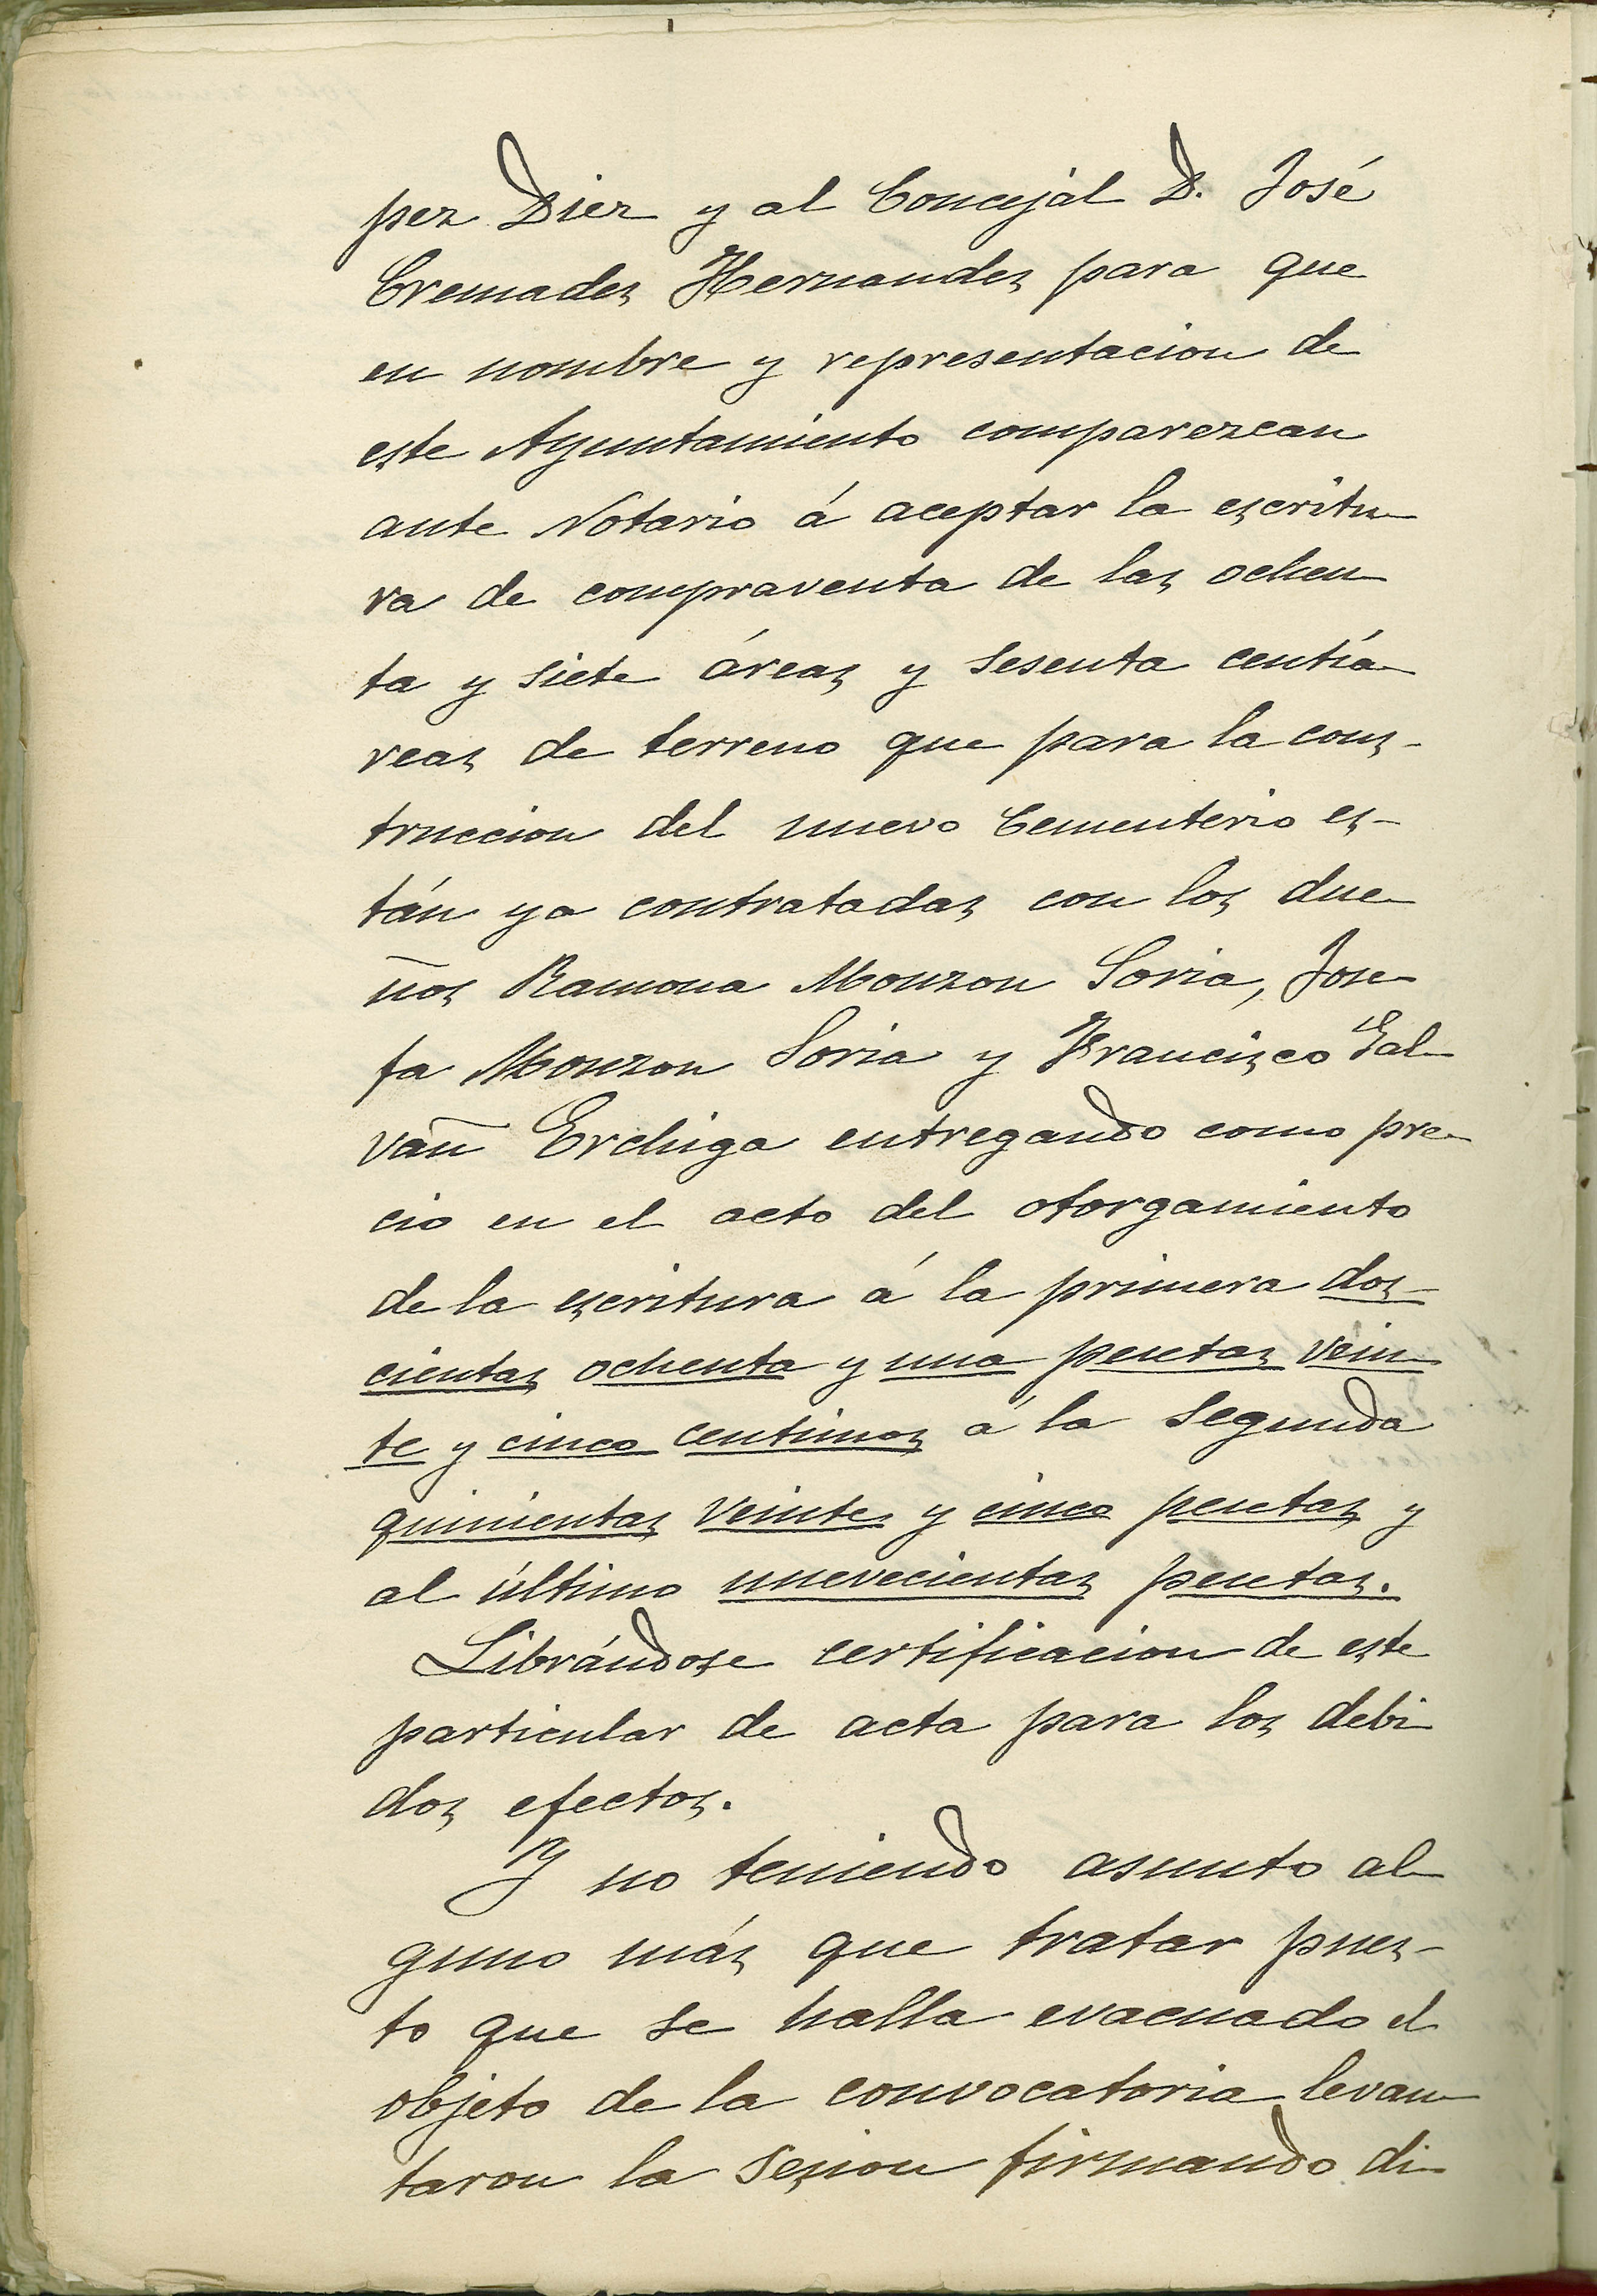 pez Diez y al Concejal D. José
Cremades Hernandes para que
en nombre y representacion de
este Ayuntamiento comparezcan
ante Notario á aceptar la escritu
ra de compraventa de las ochen
ta y siete áreas y sesenta centiá
reas de terreno que para la cons-
truccion del nuevo Cementerio es-
tán ya contratadas con los due
ños Ramona Monzon Soria, Jose
fa Monzon Soria y Francisco Gal
vañ Erchiga entregando como pre
cio en el acto del otorgamiento
de la escritura á la primera dos-
cientas ochenta y una pesetas vein
te y cinco centimos á la segunda
quinientas veinte y cinco pesetas y
al último nuevecientas pesetas.
Librándose certificacion de este
particular de acta para los debi
dos efectos.
Y no teniendo asunto al
guno más que tratar pues-
to que se halla evacuado el
objeto de la convocatoria levan
taron la sesion firmando di